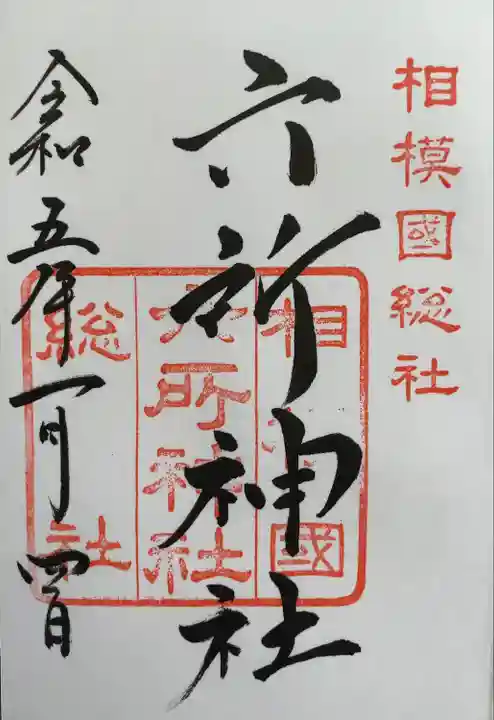 相模國総社
六所神社
相模國
六所神社
総社
令和五年一月四日